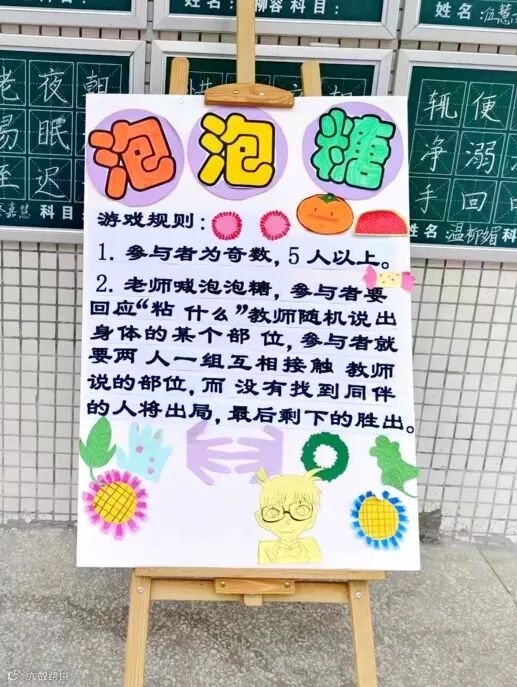 柳容 科目:
姓名:
老夜朝
易眠
至迟
嘉慧 科目:
辄便
净溺
手回
温柳媚 科目:
泡泡糖
游戏规则:
1. 参与者为奇数,5人以上。
2. 老师喊泡泡糖,参与者要
回应“粘 什么”教师随机说出
身体的某个部 位,参与者就
要两 人一组互相接触 教师
说的部位,而 没有找到同伴
的人将出局,最后剩下的胜出。
大数跨境